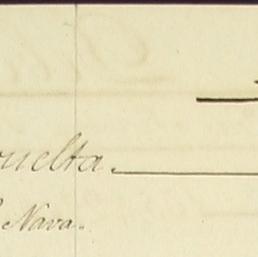 uelta.
Nava.